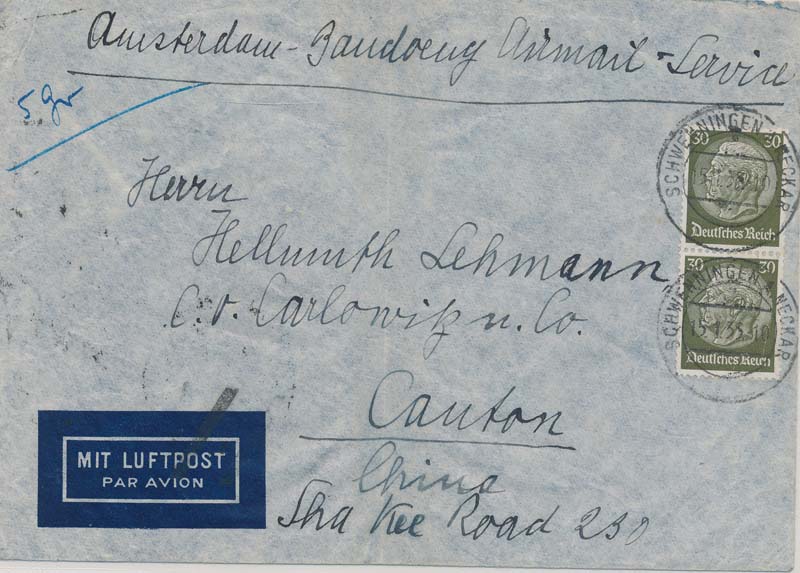 Amsterdam-Bandoeng Airmail-Service
5 gr
30 30
Deutsches Reich
SCHWENNINGEN NECKAR
15.1.35-10
Herrn
Hellmuth Lehmann
C. v. Carlowitz u. Co.
30 30
Deutsches Reich
SCHWENNINGEN NECKAR
15.1.35-10
Canton
China
Sha Kee Road 230
MIT LUFTPOST
PAR AVION